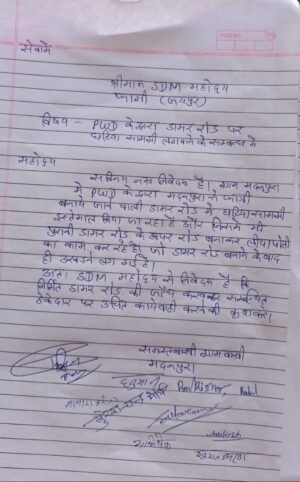 सेवामें
श्रीमान SDM महोदय
फागी (जयपुर)
विषय - PWD के द्वारा डामर रोड पर
घटिया सामग्री लगवाने के सम्बन्ध में
महोदय
सविनय नम्र निवेदन है। ग्राम मदनपुरा
में PWD के द्वारा मदनपुरा से फागी
बनाये जाने वाली डामर रोड में घटिया सामग्री
इस्तेमाल किया जा रहा है और जिसमे भी
पुरानी डामर रोड के ऊपर रोड बनाकर
का काम कर रहे है। जो डामर रोड बनाने के बाद
ही उखडने लग गई है।
अतः SDM महोदय से निवेदन है कि
निर्मित डामर रोड की जाँच करवाकर सम्बन्धित
ठेकेदार पर उचित कार्यवाही करने की कृपा करे।
समस्तवासी ग्रामवासी
मदनपुरा
Ram Kishor